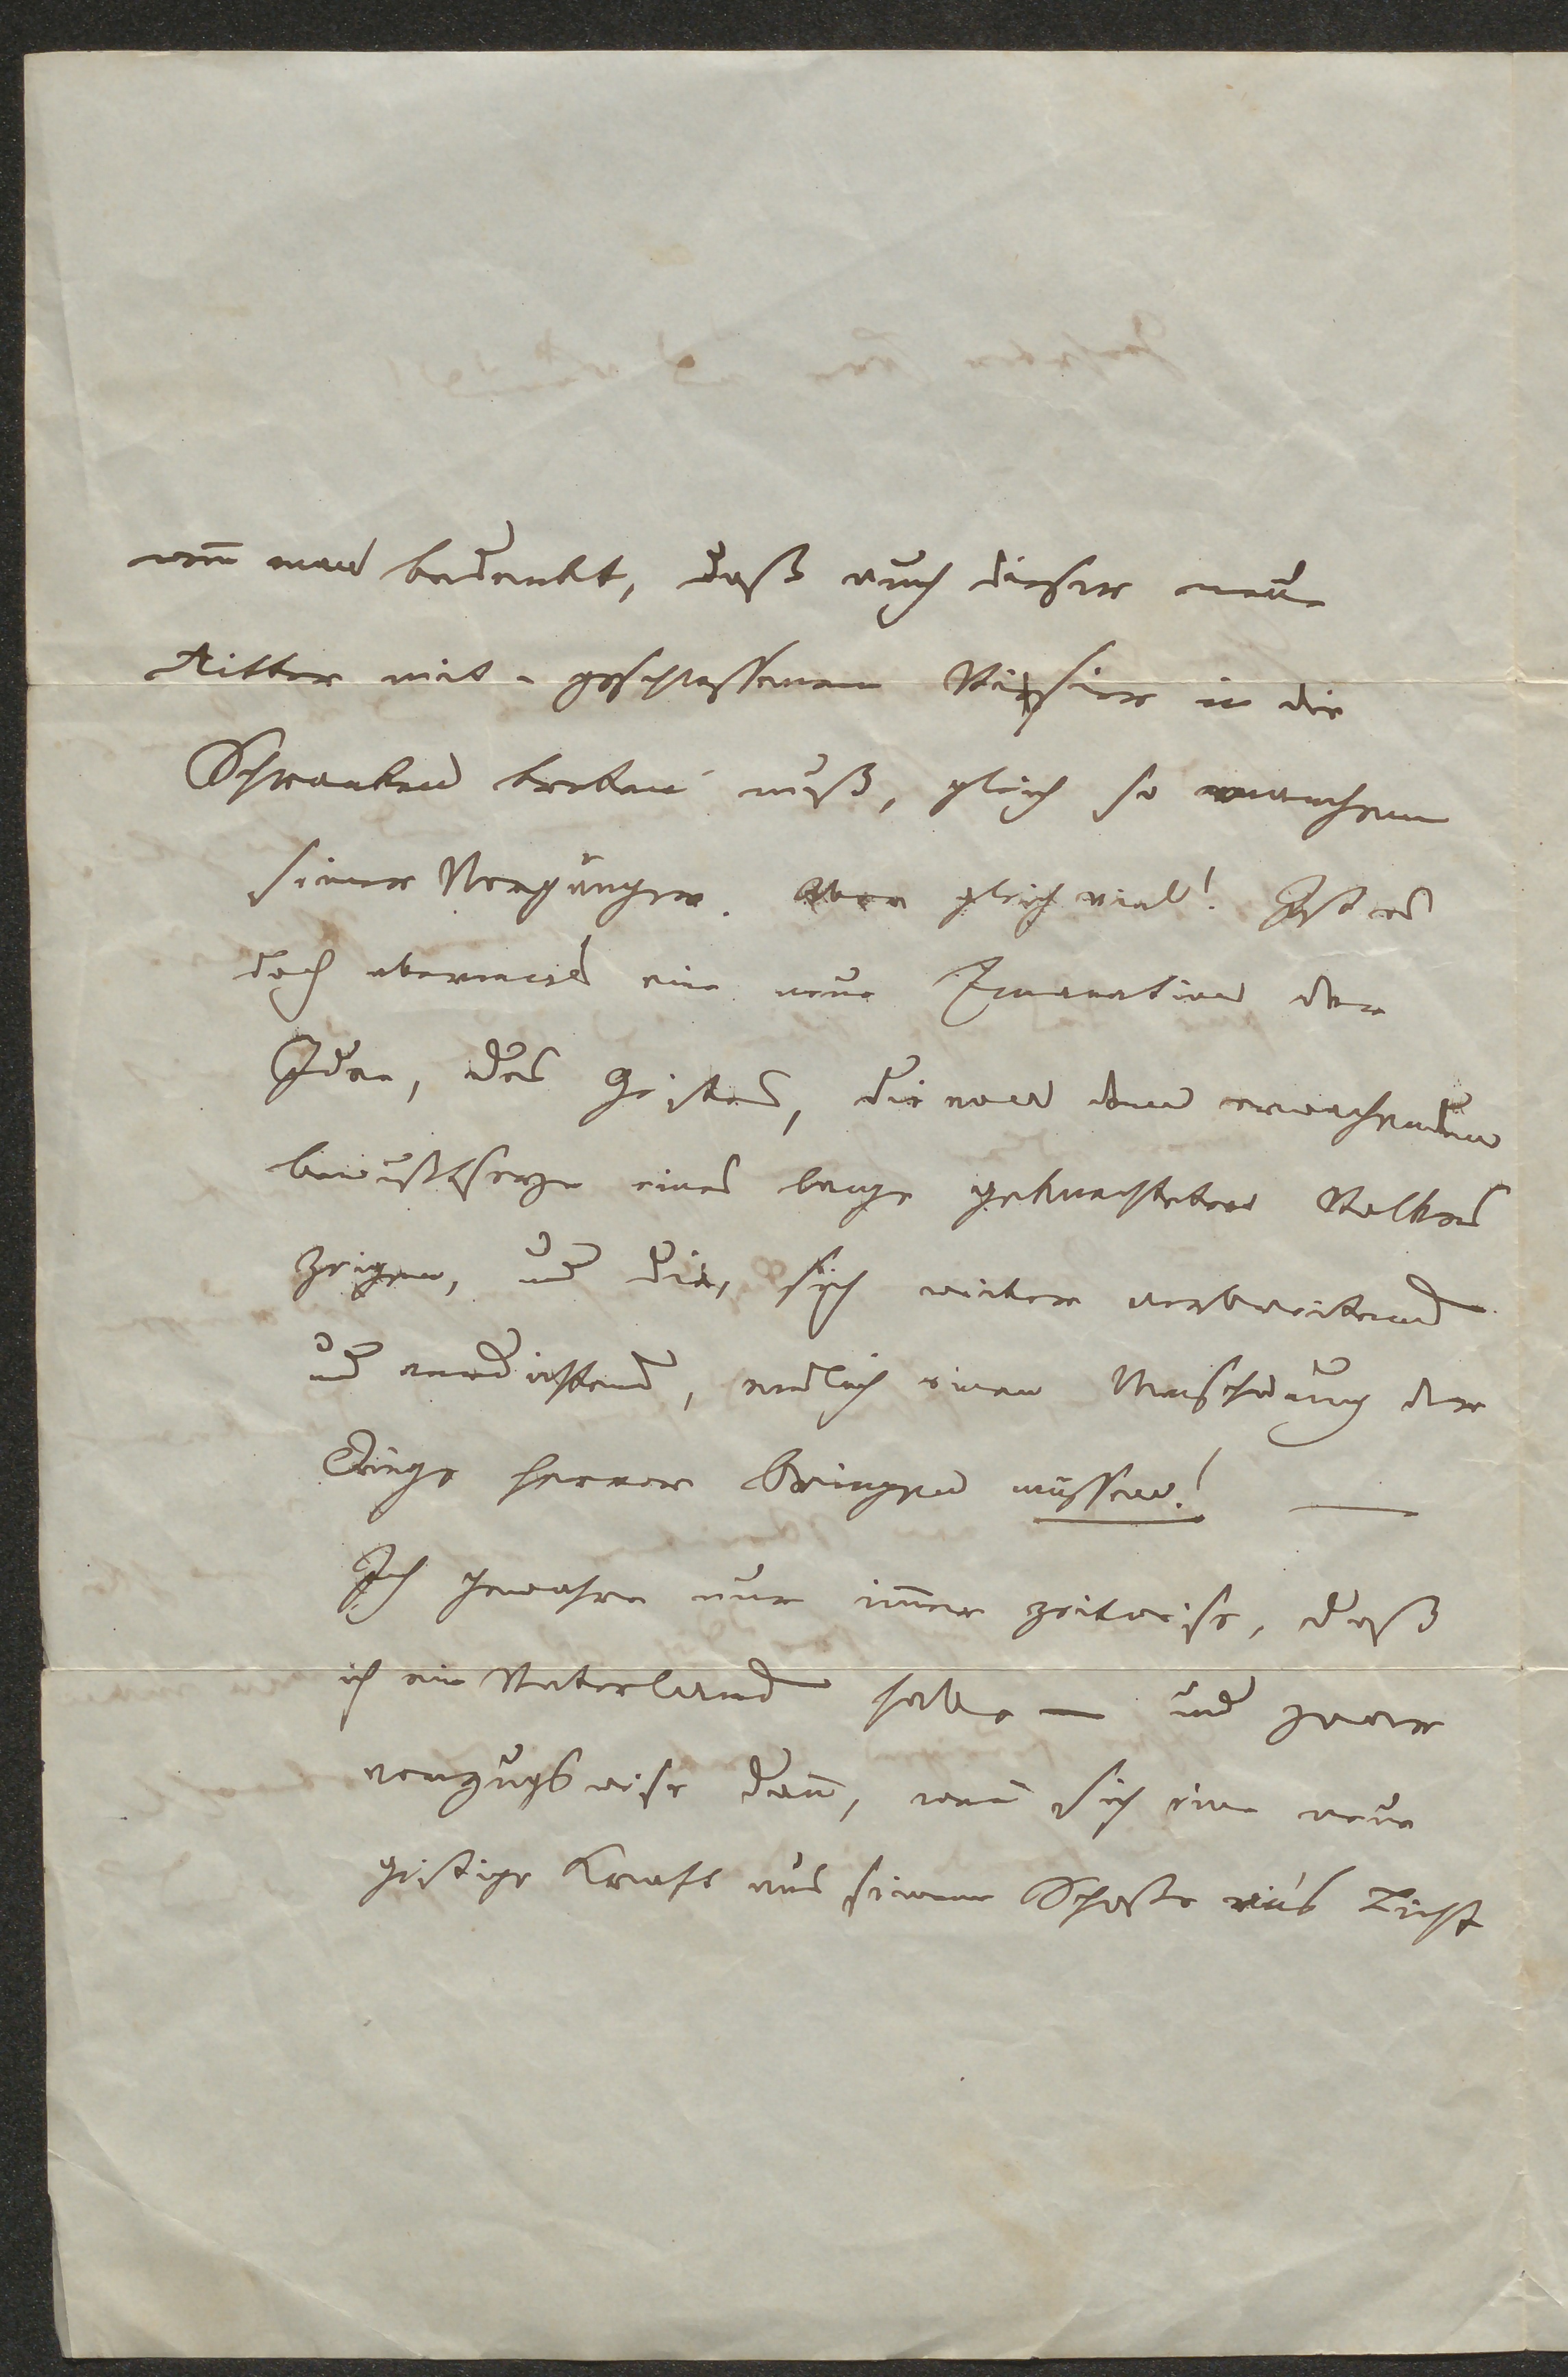 wen̄ man bedenkt, daß auch dieser neue
Ritter mit geschlossenem Visier in die
Schranken treten muß, gleich so manchem
seiner Vorgänger. Aber gleich viel! Ist es
doch abermals eine neue Emanation der
Idee, des Geistes, die von dem erwachenden
eines lange geknechteten Volkes
zeigen, und die, sich weiter verbreitend
und verdichtend, endlich einen Umschwung der
Dinge hervor bringen müssen! —
Ich gewahre nur im̄er zeitweise, daß
ich ein Vaterland habe — und zwar
vorzugsweise dan̄, wen̄ sich eine neue
geistige Kraft aus seinem Schoße an's Licht